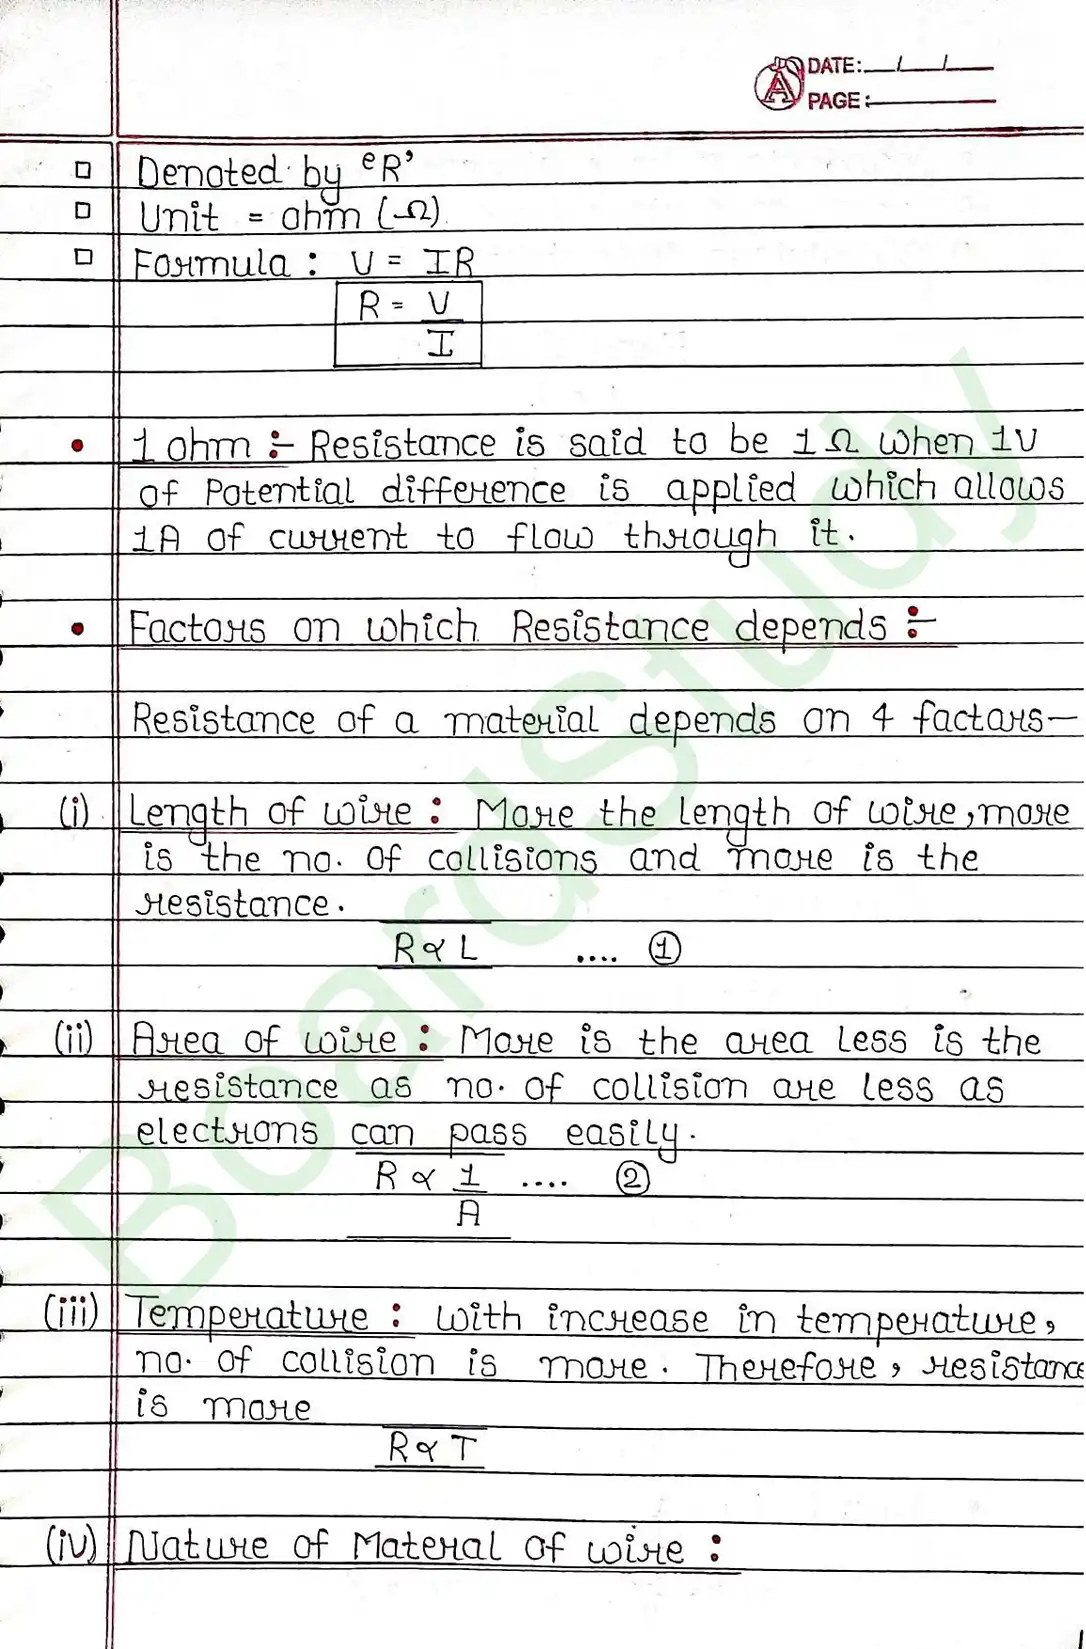 DATE: / /
PAGE:
□ Denoted by 'R'
□ Unit = ohm (Ω)
□ Formula : V = IR
R = V
I
• 1 ohm :- Resistance is said to be 1Ω when 1V
of Potential difference is applied which allows
1A of current to flow through it.
• Factors on which Resistance depends :-
Resistance of a material depends on 4 factors—
(i) Length of wire : More the length of wire, more
is the no. of collisions and more is the
resistance.
R ∝ L .... ①
(ii) Area of wire : More is the area less is the
resistance as no. of collision are less as
electrons can pass easily.
R ∝ 1 .... ②
A
(iii) Temperature : With increase in temperature,
no. of collision is more. Therefore, resistance
is more
R ∝ T
(iv) Nature of Materal of wire :
BoardStudy